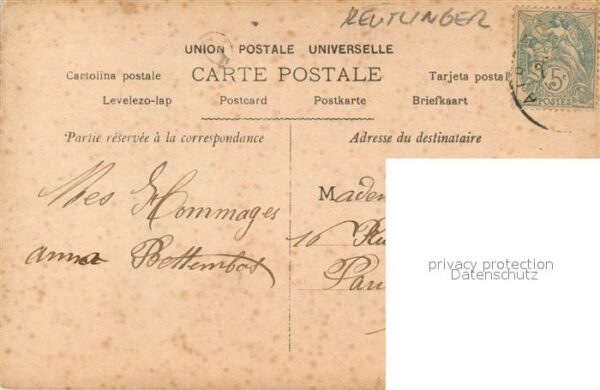 REUTLINGER
UNION POSTALE UNIVERSELLE
Cartolina postale CARTE POSTALE Tarjeta postal
Levelezo-lap Postcard Postkarte Briefkaart
Partie réservée à la correspondance
Adresse du destinataire
5c
POSTES
Mes Hommages
anna Bettembos
Madem
16 Ru
Pari
privacy protection
Datenschutz